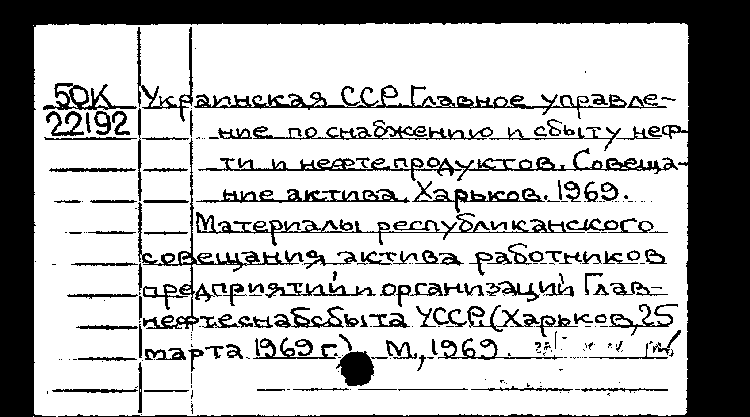 50К Украинская ССР. Главное управле-
22192 ние по снабжению и сбыту неф-
ти и нефтепродуктов. Совеща-
ние актива. Харьков. 1969.
Материалы республиканского
совещания актива работников
предприятий и организаций Глав-
нефтеснабсбыта УССР. (Харьков, 25
марта 1969 г.) М., 1969.